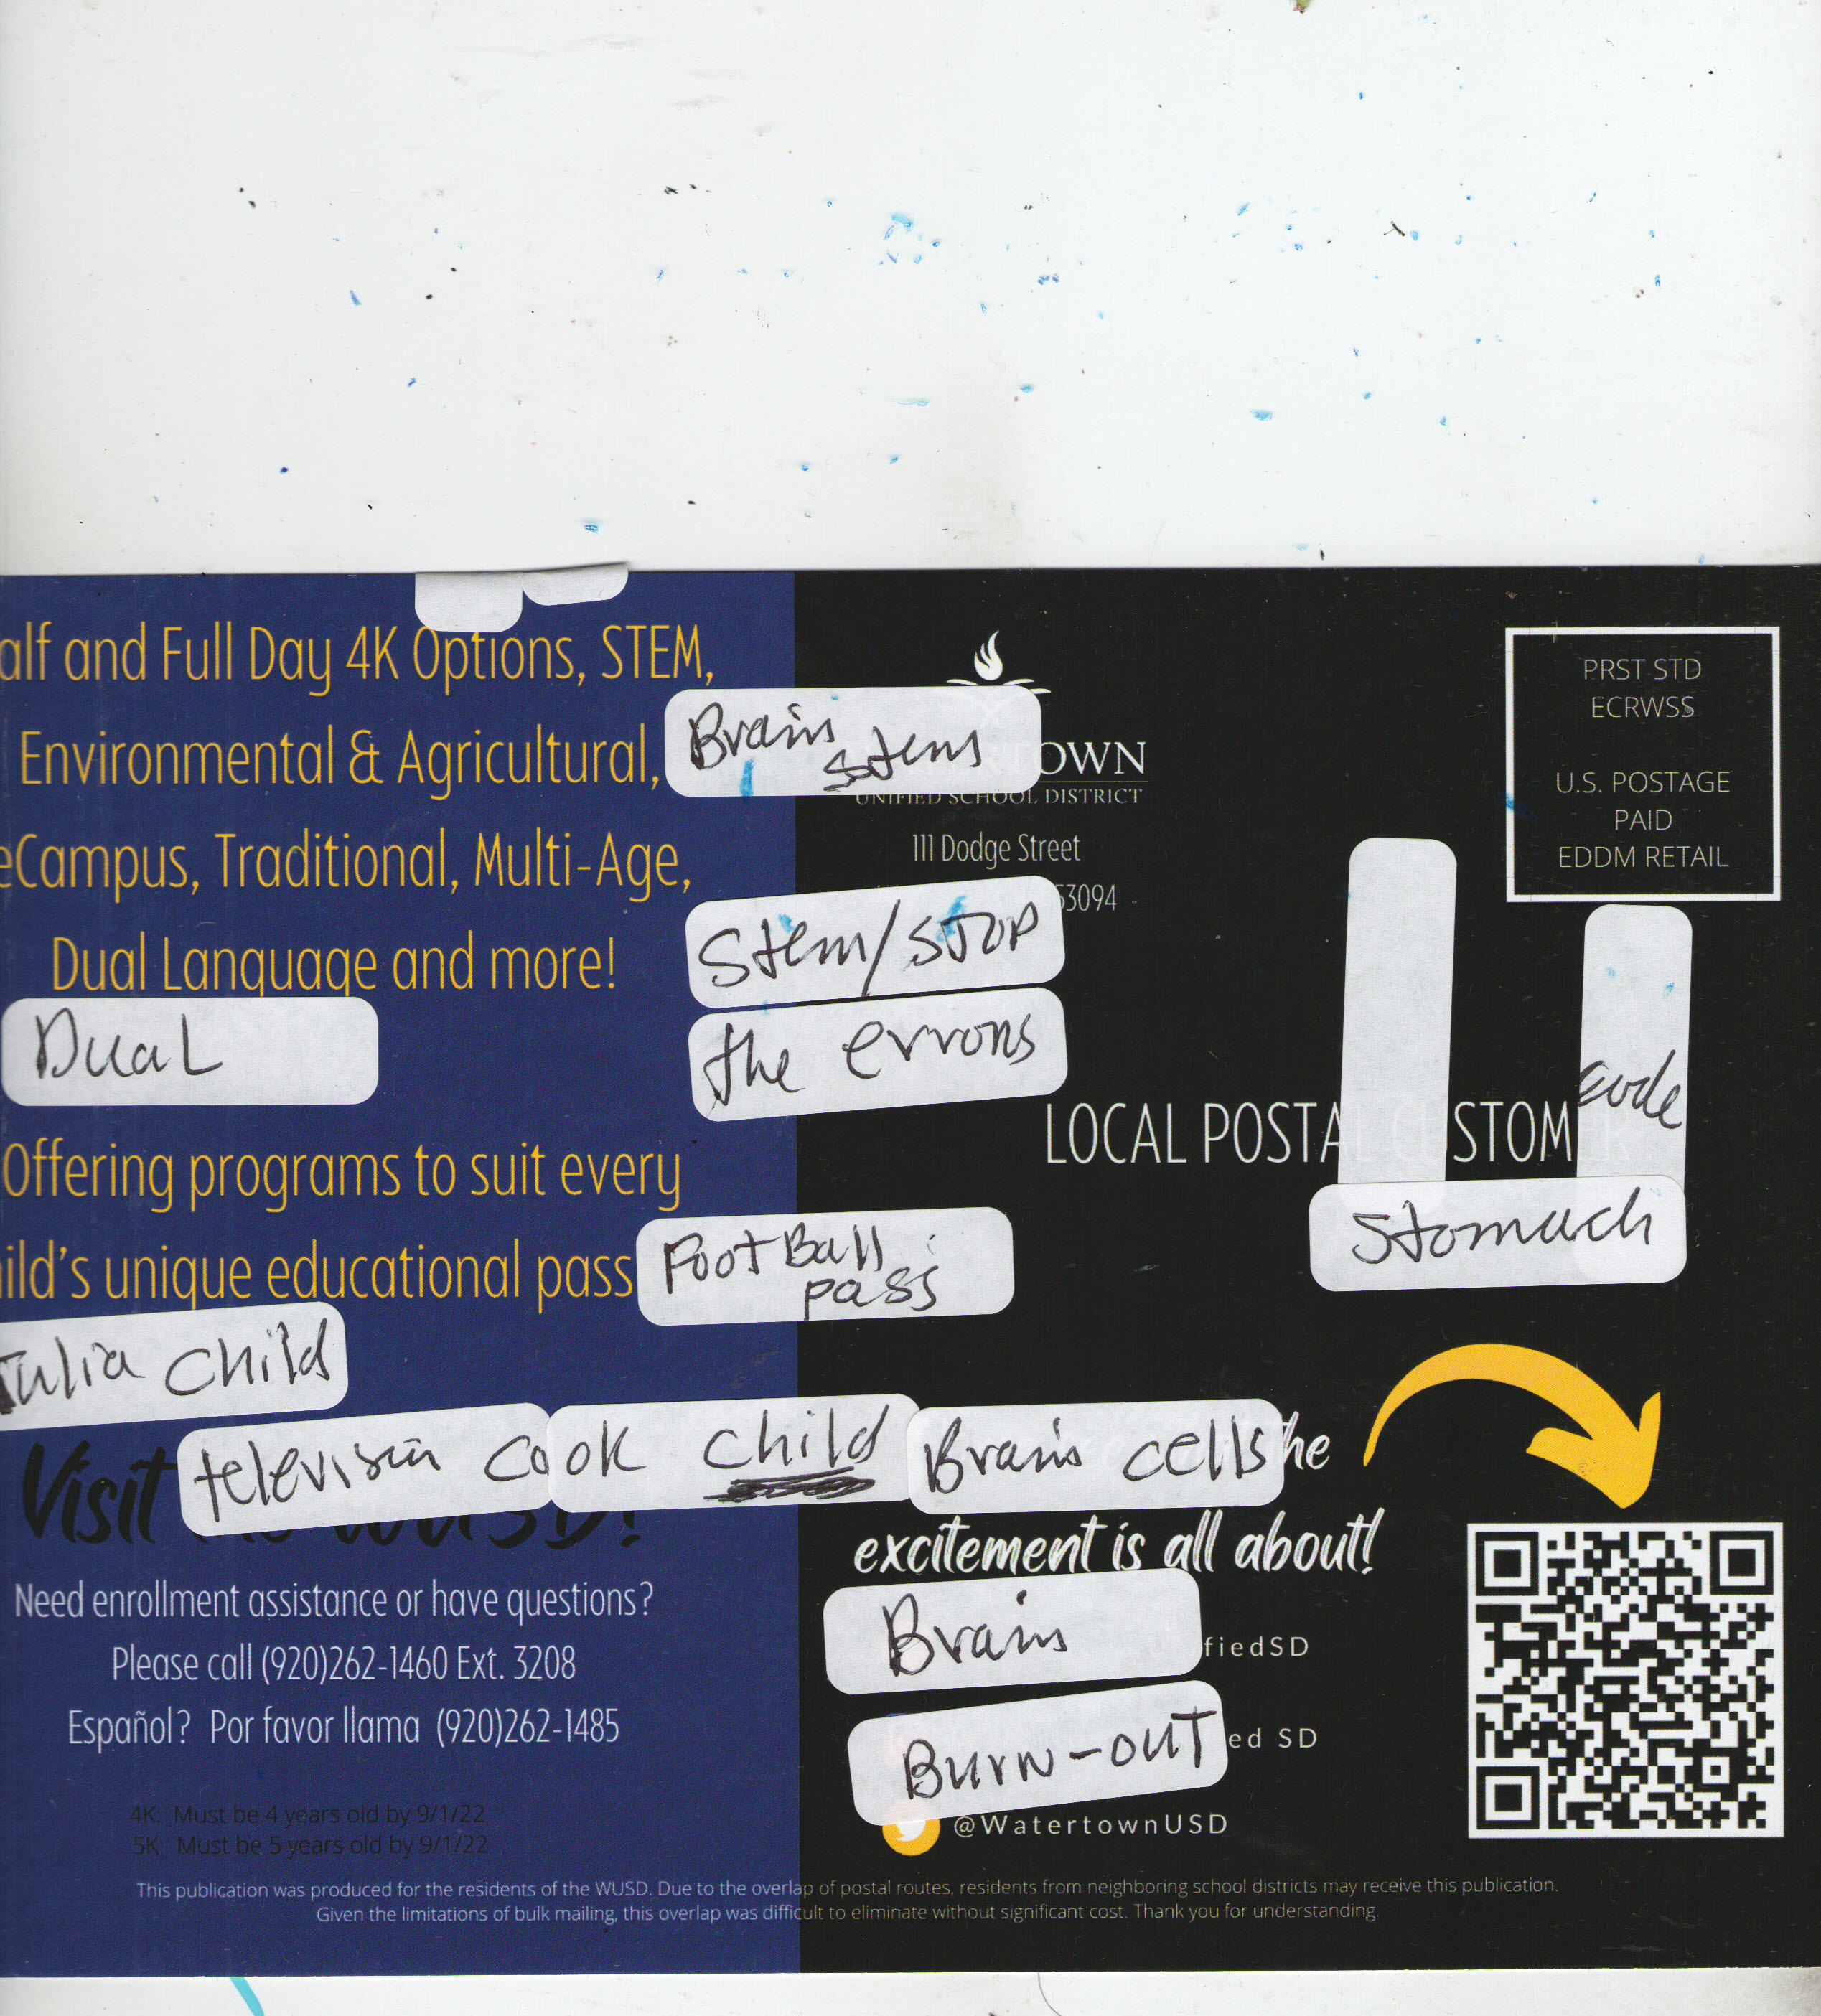 alf and Full Day 4K Options, STEM,
Environmental & Agricultural,
eCampus, Traditional, Multi-Age,
Dual Language and more!
Dual
Offering programs to suit every
ild's unique educational pass
Julia Child
Visit
television cook child Brain cells
Need enrollment assistance or have questions?
Please call (920)262-1460 Ext. 3208
Español? Por favor llama (920)262-1485
4K: Must be 4 years old by 9/1/22
5K: Must be 5 years old by 9/1/22
Brain
stems
OWN
UNIFIED SCHOOL DISTRICT
111 Dodge Street
53094
Stem/STOP
the errors
FootBall
pass
PRST STD
ECRWSS
U.S. POSTAGE
PAID
EDDM RETAIL
code
LOCAL POSTAL CUSTOMER
Stomach
he
excitement is all about!
Brain
fiedSD
Burn-out
ed SD
@WatertownUSD
This publication was produced for the residents of the WUSD. Due to the overlap of postal routes, residents from neighboring school districts may receive this publication.
Given the limitations of bulk mailing, this overlap was difficult to eliminate without significant cost. Thank you for understanding.